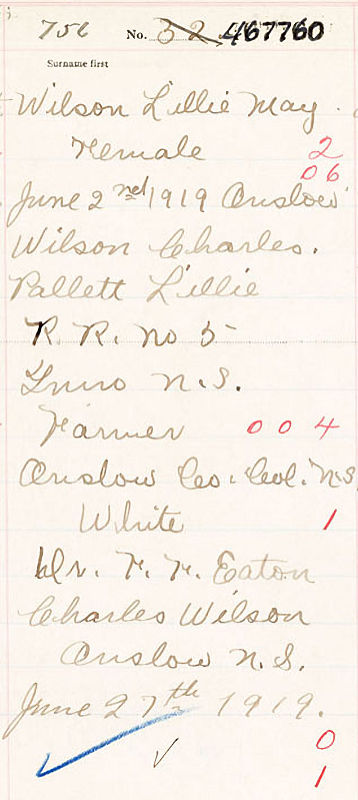 756 No. 32 467760
Surname first
Wilson Lillie May
Female 2
06
June 2nd 1919 Onslow
Wilson Charles.
Pallett Lillie
R. R. No 5
Truro N.S.
Farmer 0 0 4
Onslow Co. Col. N.S
White 1
Dr. F. F. Eaton
Charles Wilson
Onslow N.S.
June 27th 1919.
0
1